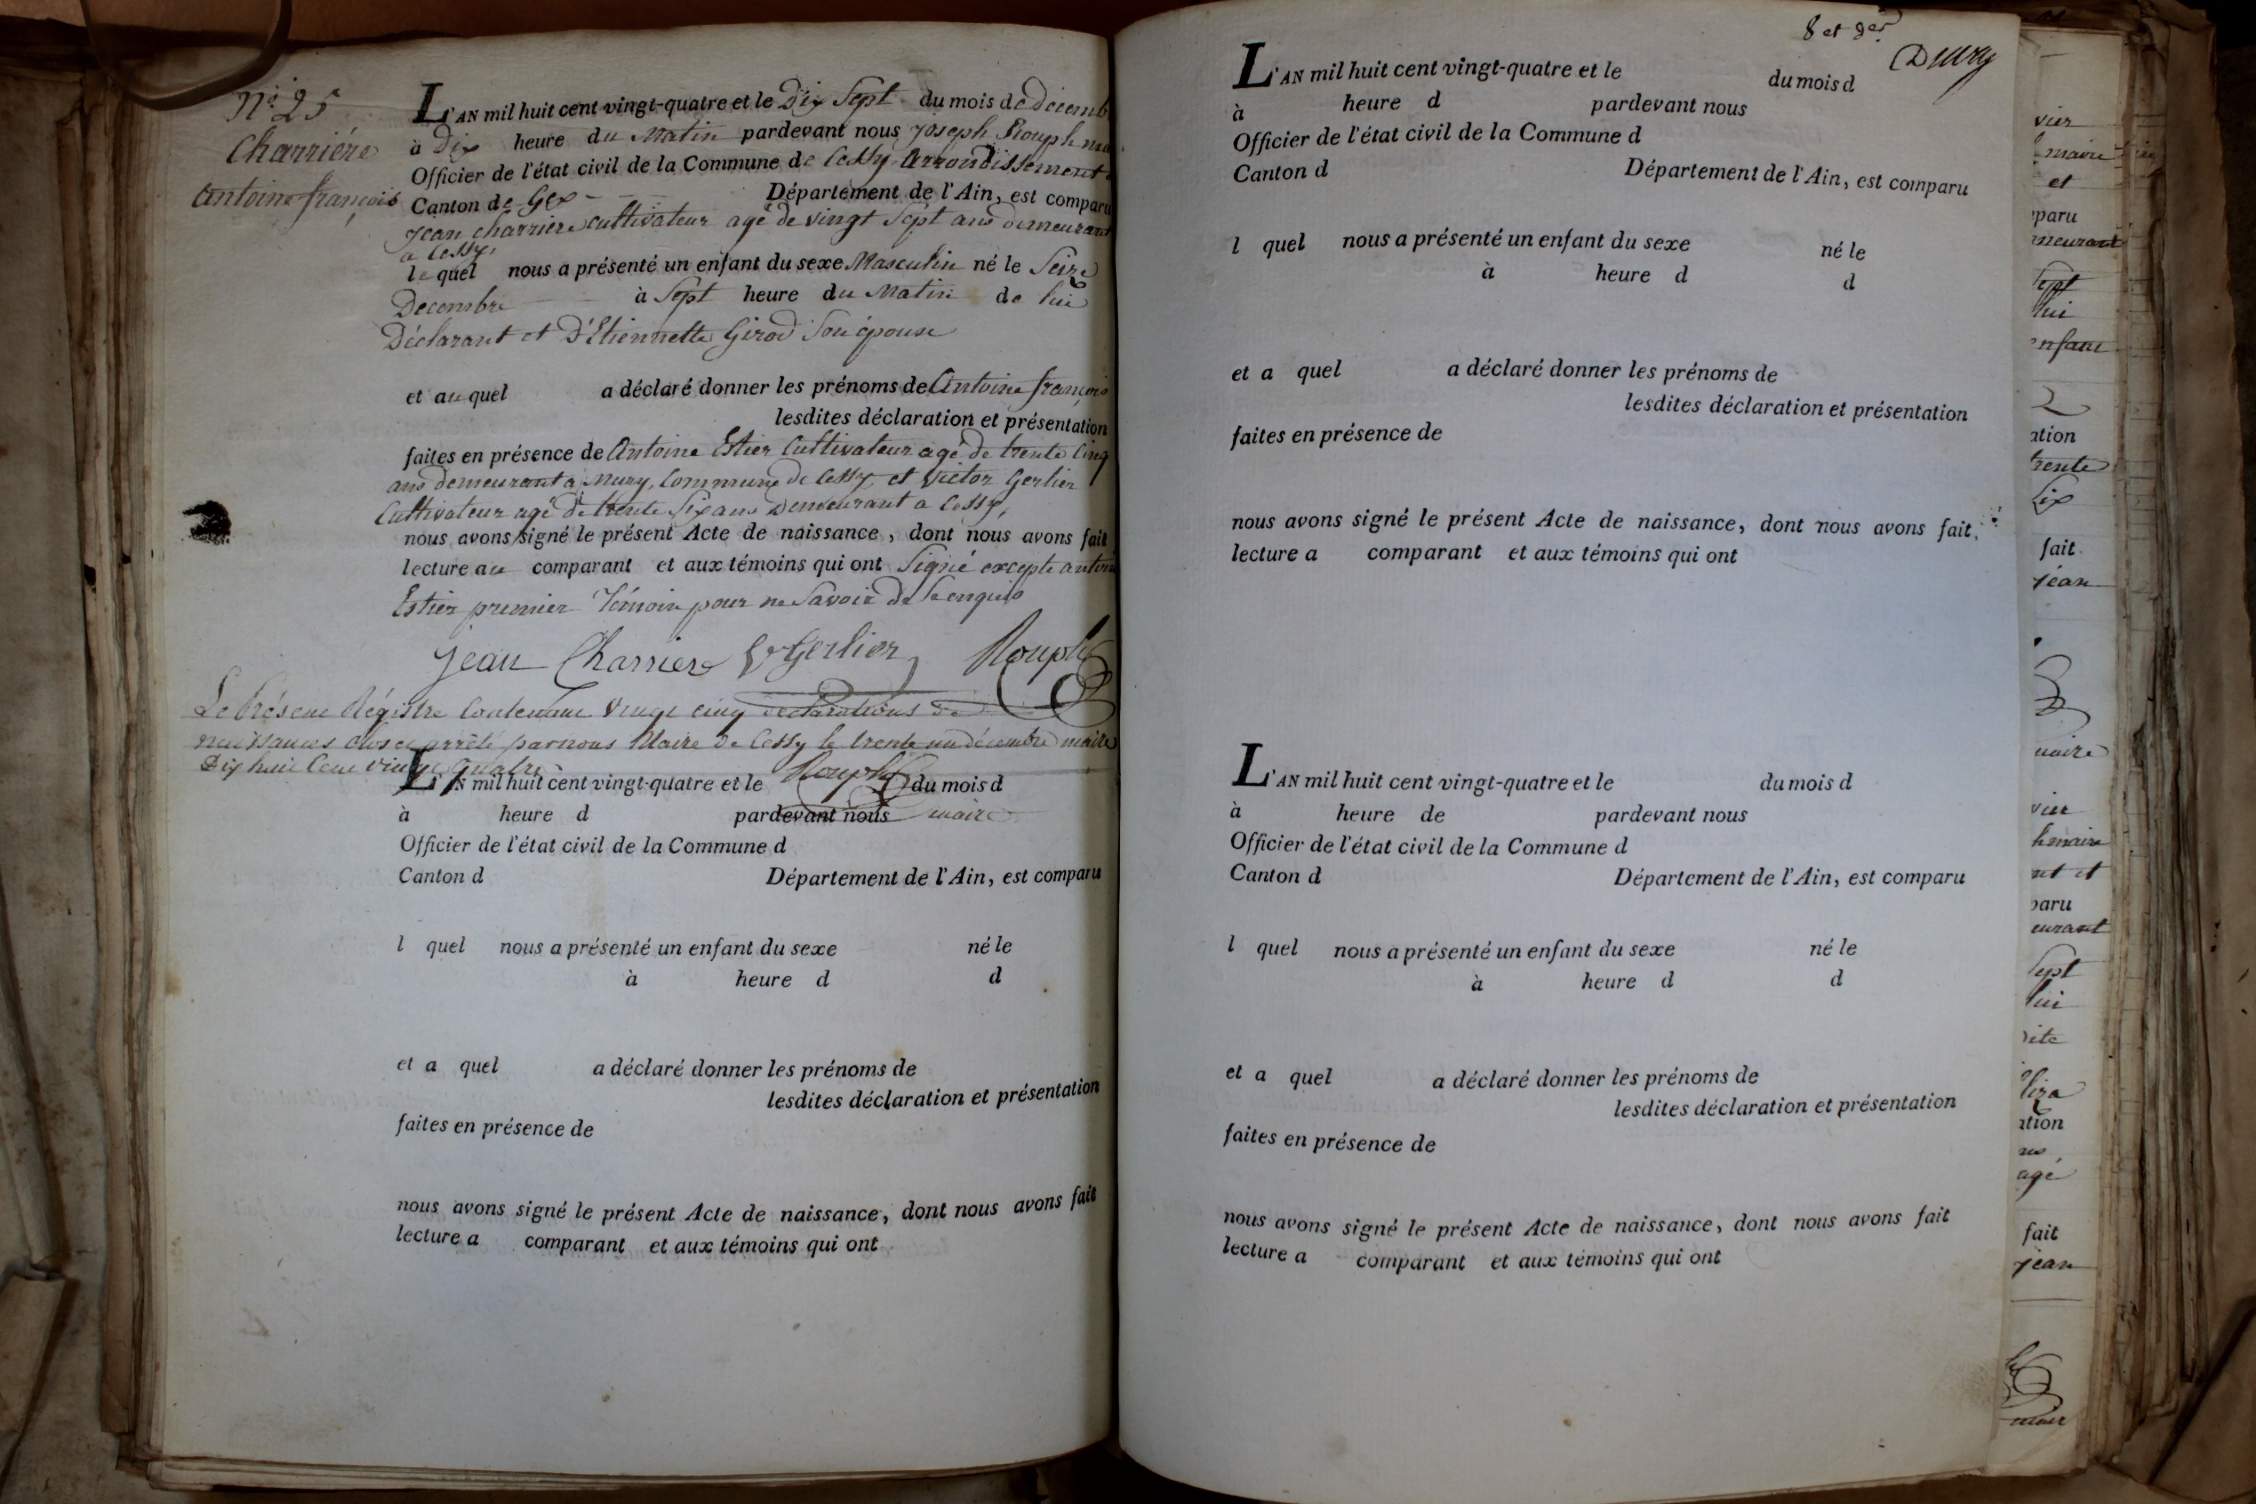 N.° 25
Charriére
Antoine françois
L'AN mil huit cent vingt-quatre et le Dix Sept du mois de décemb
à Dix heure du Matin pardevant nous joseph Rouph
Officier de l'état civil de la Commune de Cessy Arrondissement
Canton de Gex Département de l'Ain, est comparu
jean charriere cultivateur agé de vingt Sept ans demeurant
a Cessy,
le quel nous a présenté un enfant du sexe Masculin né le Seize
Decembre à Sept heure du Matin de lui
Déclarant et D'Etiennette Girod Son épouse
et au quel a déclaré donner les prénoms de Antoine françois
lesdites déclaration et présentation
faites en présence de Antoine Estier Cultivateur agé de trente Cinq
ans demeurant a Mury, Commune de Cessy et Victor Gerlier
Cultivateur agé de trente Six ans Demeurant a Cessy,
nous avons signé le présent Acte de naissance, dont nous avons fait
lecture au comparant et aux témoins qui ont Signé excepte antoine
Estier premier Témoin pour ne Savoir de Ce enquis
jean Charriere V Gerlier Rouph
Le présent Régistre Contenant Vingt cinq declarations de
naissances clos et arrêté par nous Maire de Cessy le trente un décembre mille
Dix huit Cent vingt quatre Rouph
L'AN mil huit cent vingt-quatre et le du mois d
à heure d pardevant nous maire
Officier de l'état civil de la Commune d
Canton d Département de l'Ain, est comparu
l quel nous a présenté un enfant du sexe né le
à heure d d
et a quel a déclaré donner les prénoms de
lesdites déclaration et présentation
faites en présence de
nous avons signé le présent Acte de naissance, dont nous avons fait
lecture a comparant et aux témoins qui ont
8 et der
L'AN mil huit cent vingt-quatre et le du mois d
à heure d pardevant nous
Officier de l'état civil de la Commune d
Canton d Département de l'Ain, est comparu
l quel nous a présenté un enfant du sexe né le
à heure d d
et a quel a déclaré donner les prénoms de
lesdites déclaration et présentation
faites en présence de
nous avons signé le présent Acte de naissance, dont nous avons fait
lecture a comparant et aux témoins qui ont
L'AN mil huit cent vingt-quatre et le du mois d
à heure de pardevant nous
Officier de l'état civil de la Commune d
Canton d Département de l'Ain, est comparu
l quel nous a présenté un enfant du sexe né le
à heure d d
et a quel a déclaré donner les prénoms de
lesdites déclaration et présentation
faites en présence de
nous avons signé le présent Acte de naissance, dont nous avons fait
lecture a comparant et aux témoins qui ont
vier
maire
et
paru
meurant
Sept
lui
enfant
ation
trente
Six
fait
jean
maire
vier
h maire
nt et
paru
eurant
Sept
lui
ation
agé
fait
jean